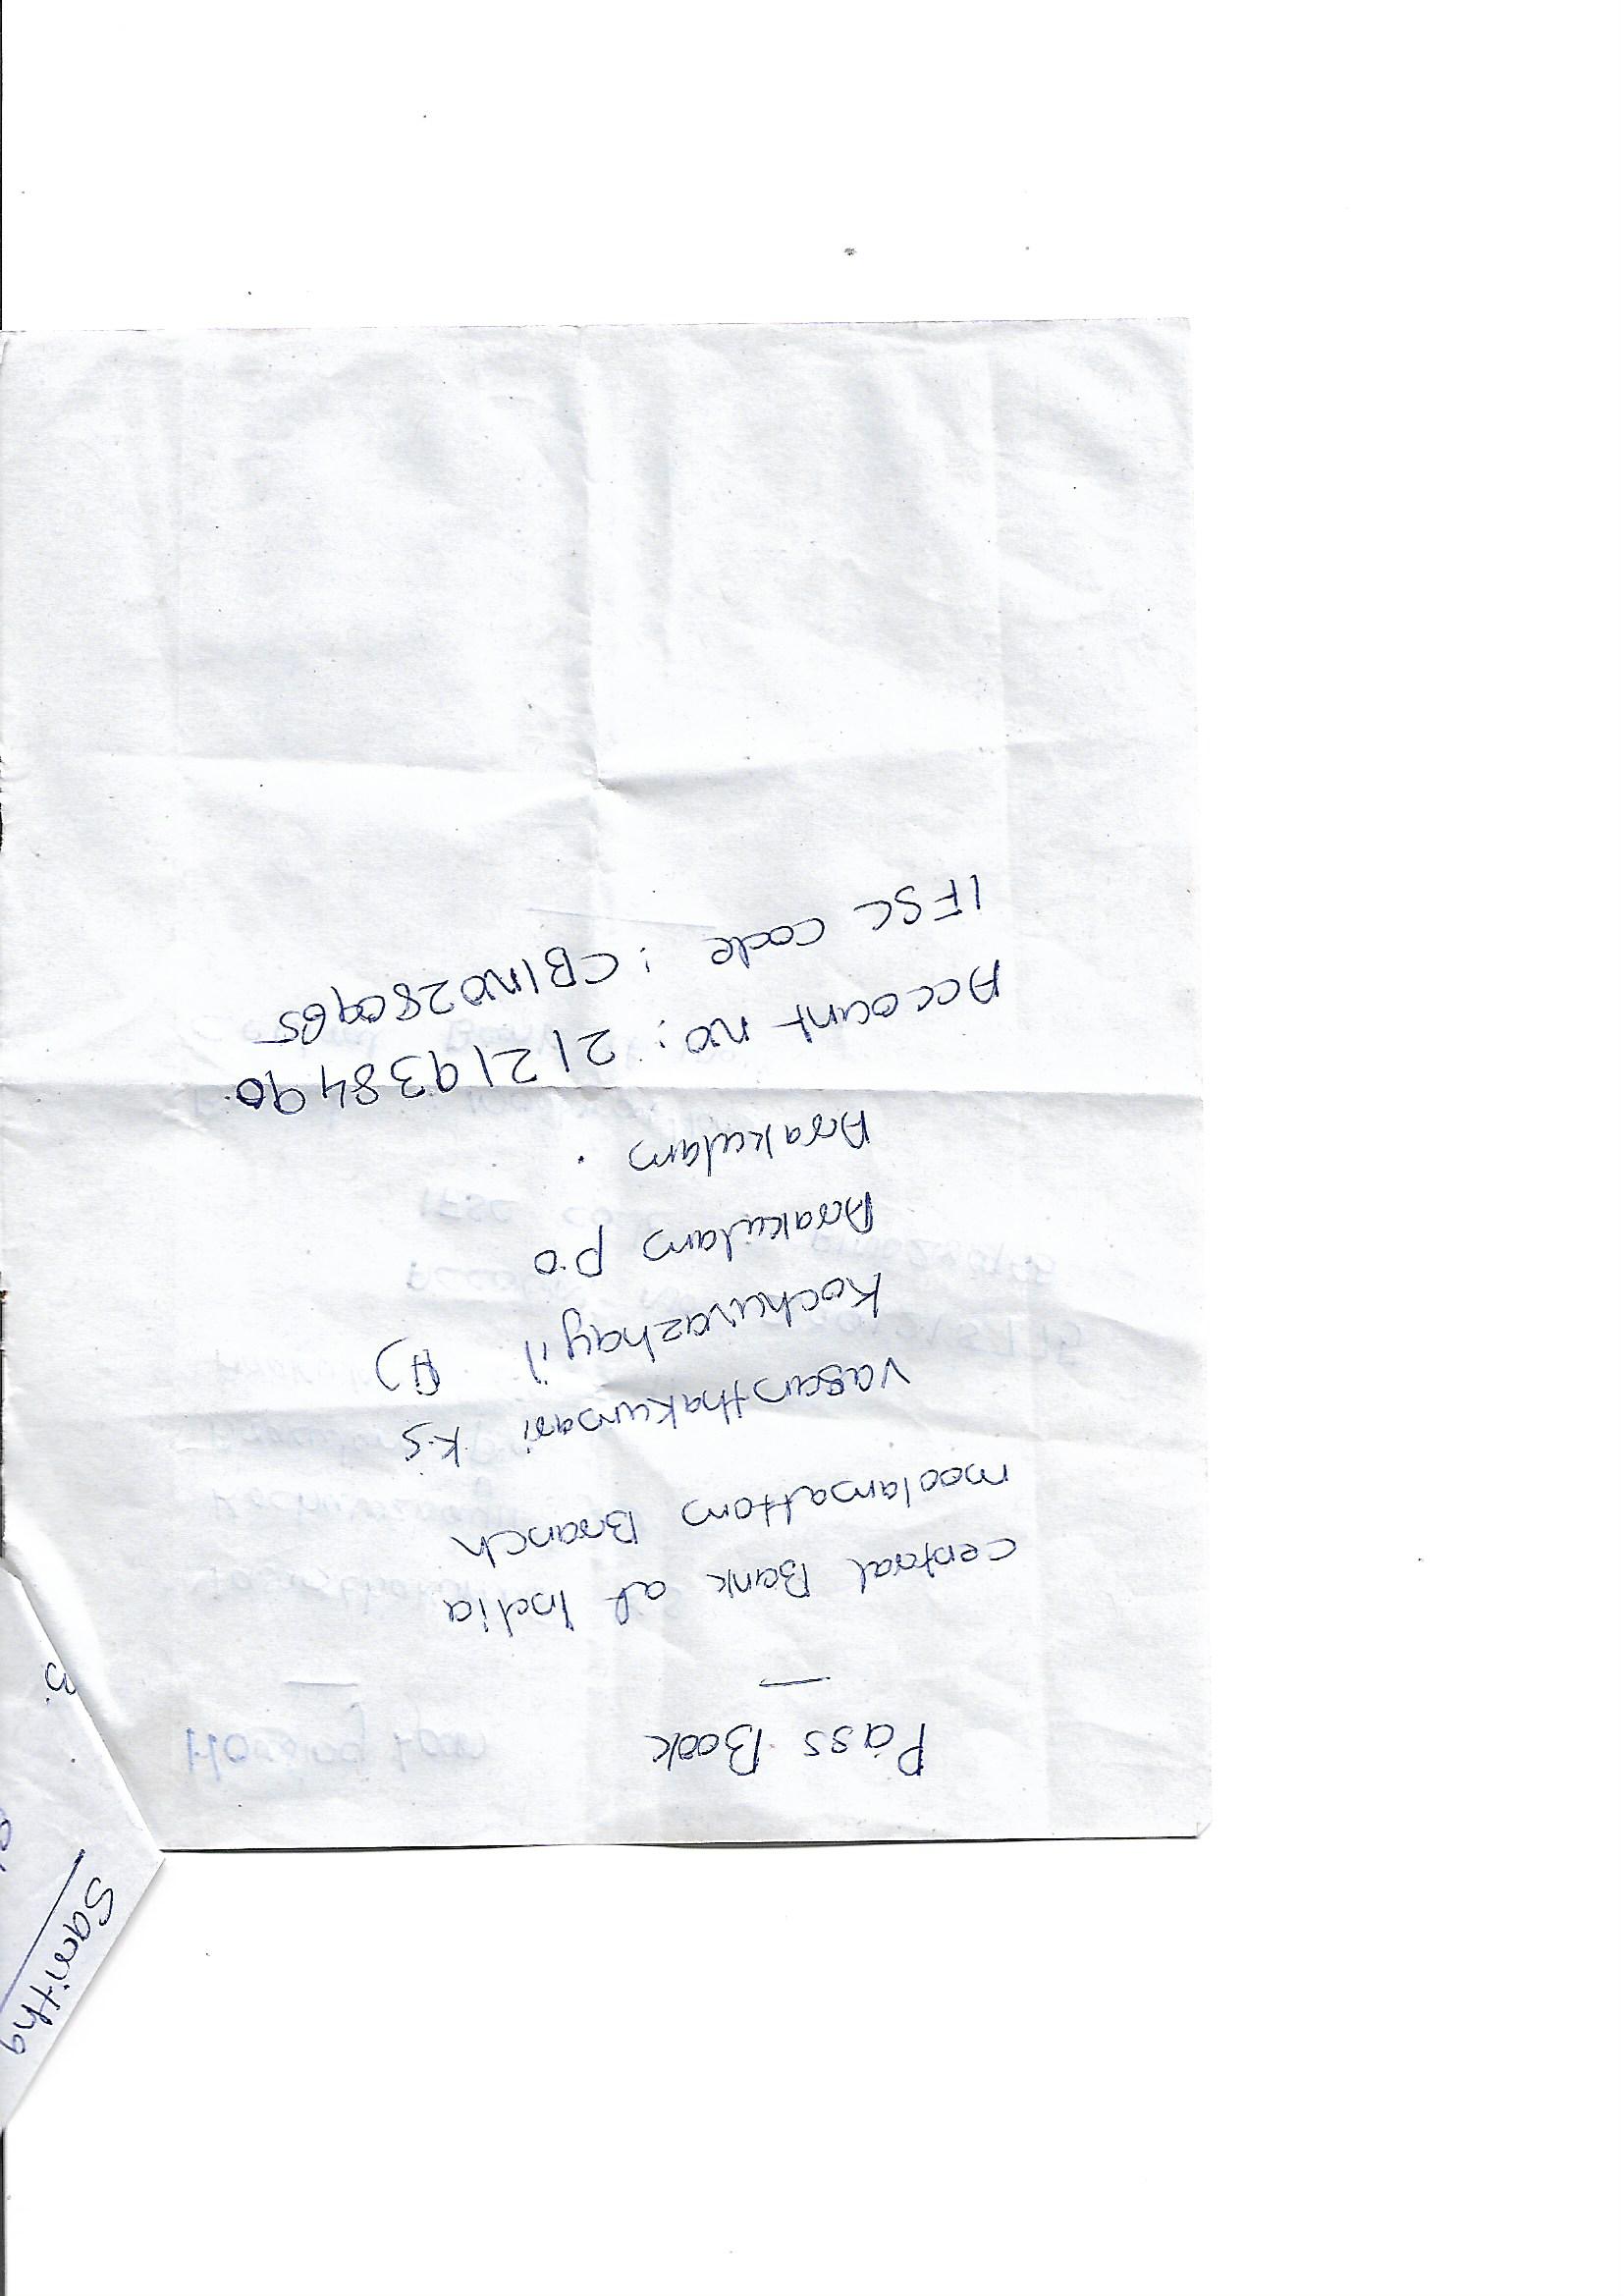 Pass Book
central Bank of India
moolamattom Branch
vasanthakumari K.S
Kochuvazhayil H)
Arakulam p.o
Arakulam .
Account no: 2121938490
IFSC code : CBIN0280965
Samitha